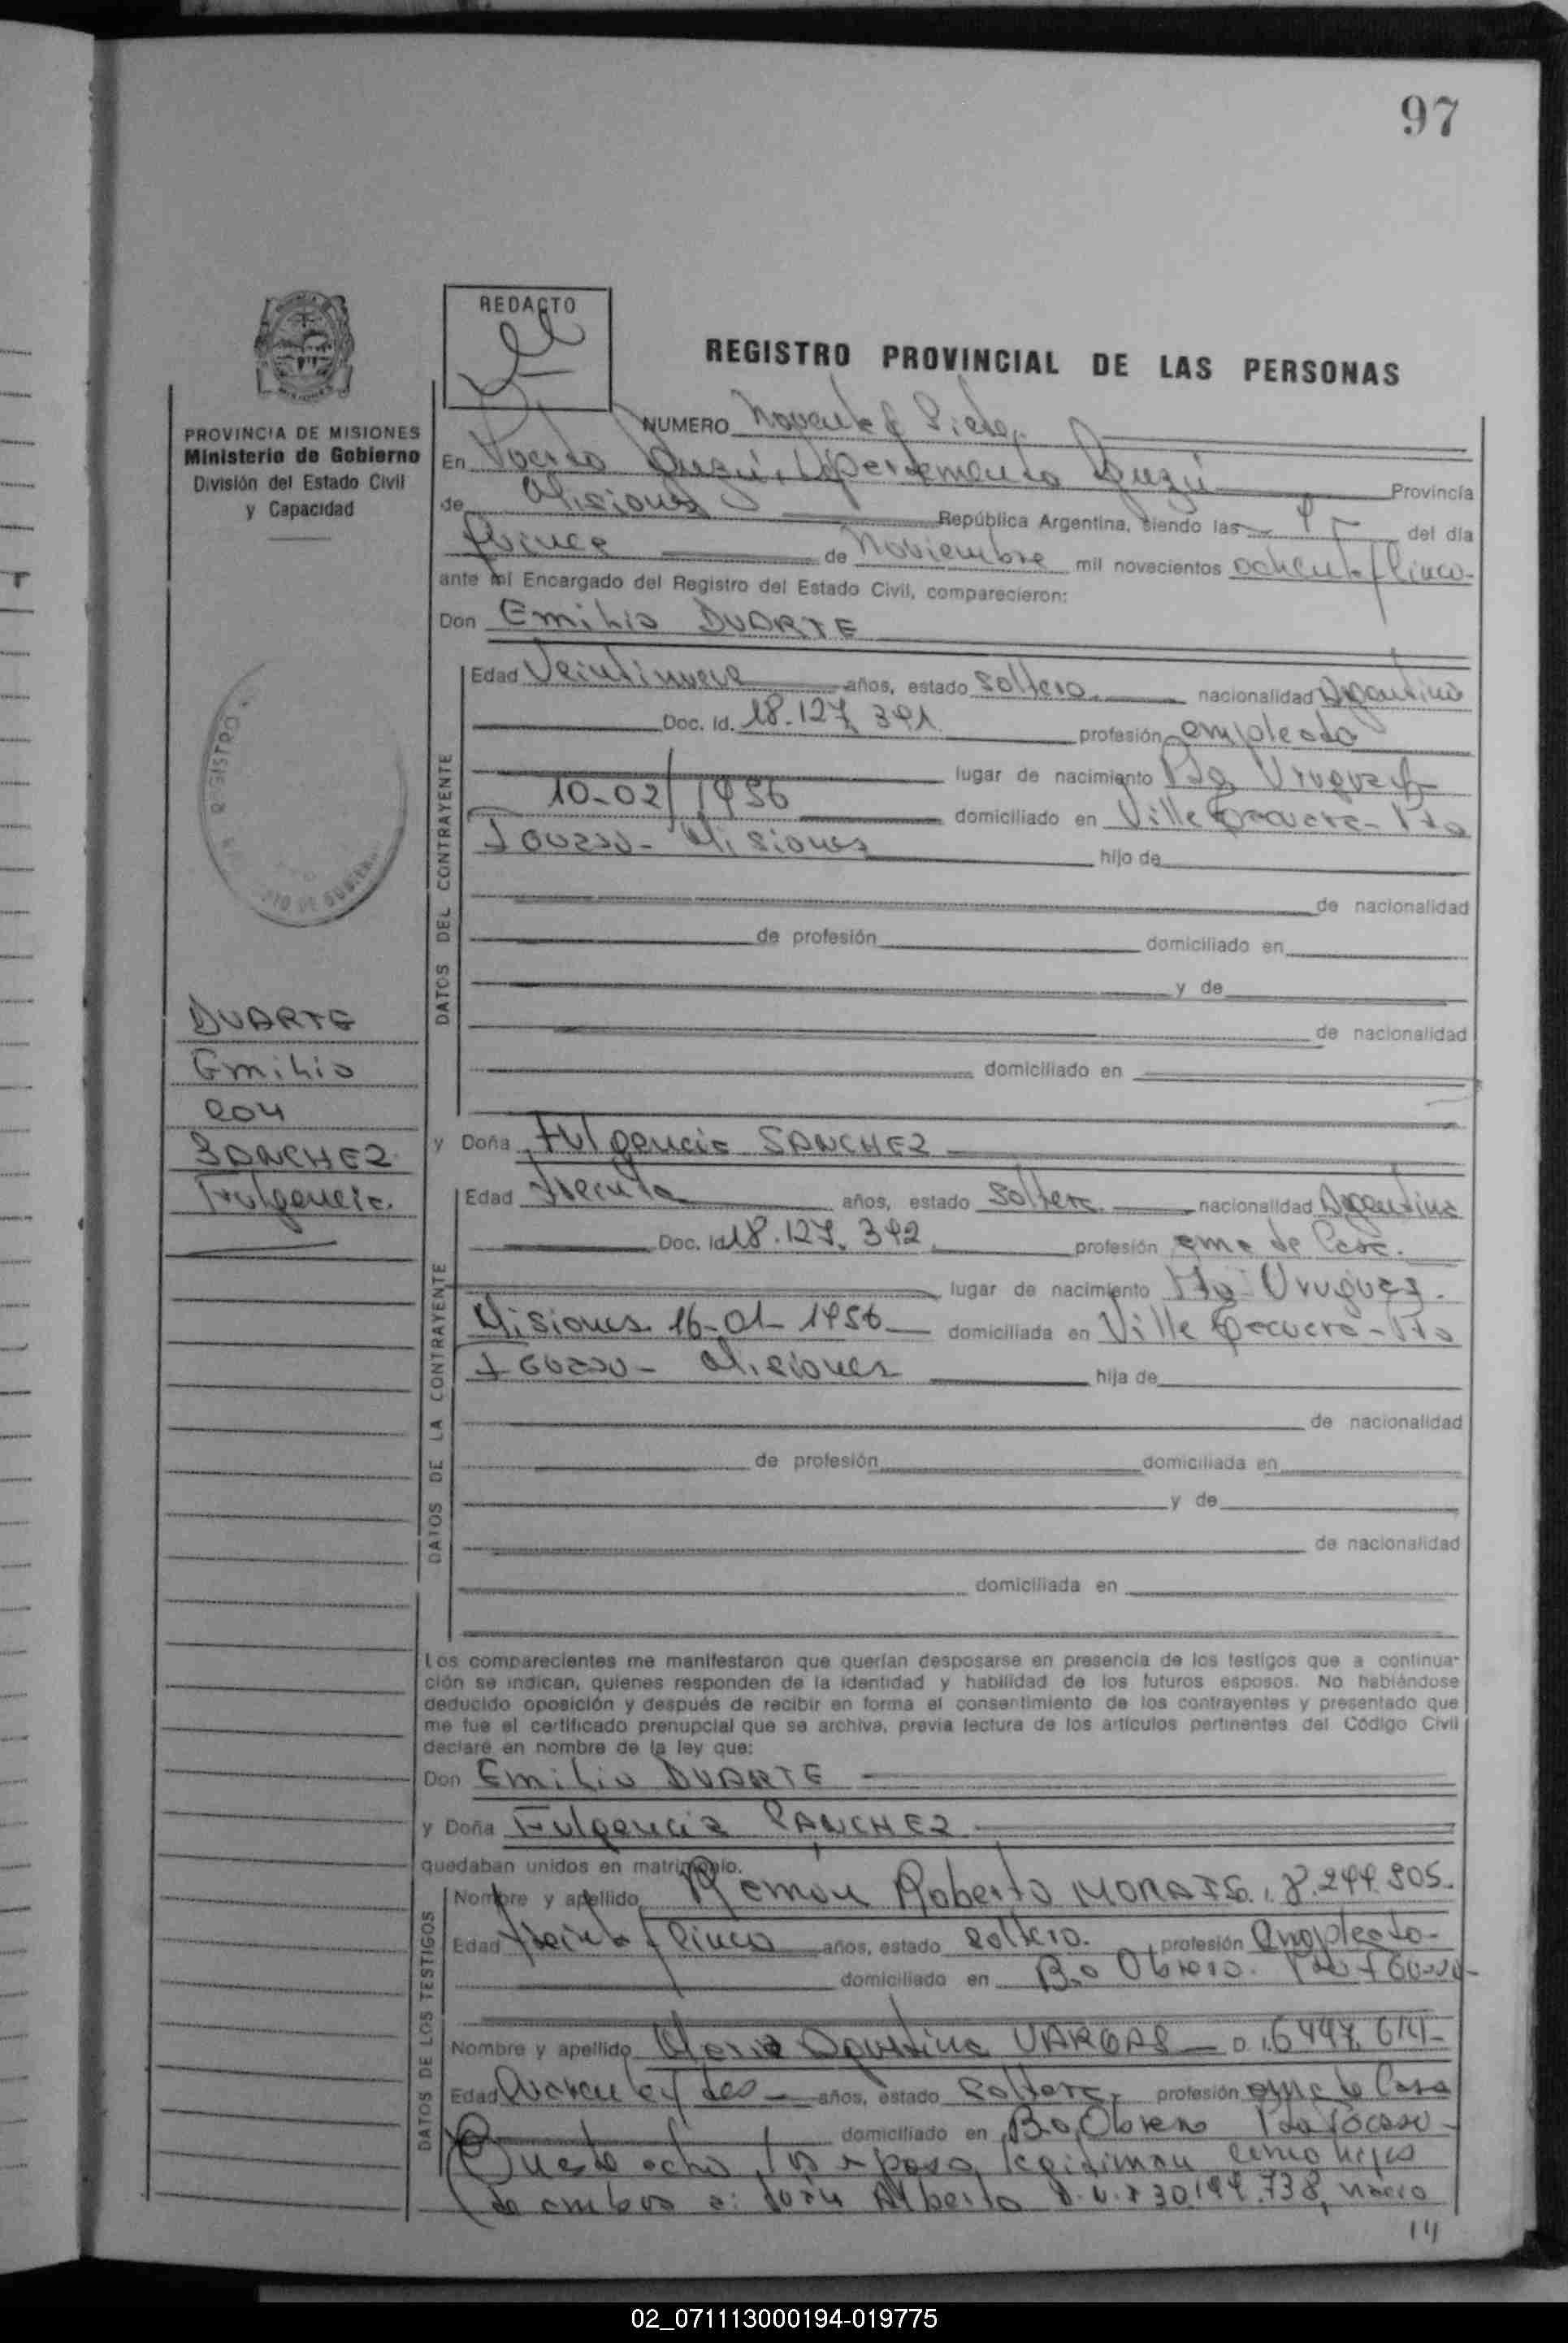 97
REDACTO
REGISTRO PROVINCIAL DE LAS PERSONAS
PROVINCIA DE MISIONES
Ministerio de Gobierno
División del Estado Civil
y Capacidad
NUMERO Noventa y Siete
En Puerto Iguazú, Departamento Iguazú Provincia
de Misiones República Argentina, siendo las del día
Quince de Noviembre mil novecientos ochenta y Cinco
ante mí Encargado del Registro del Estado Civil, comparecieron:
Don Emilio DUARTE
DATOS DEL CONTRAYENTE
Edad Veintinueve años, estado Soltero nacionalidad Argentino
Doc. Id. 18.127.391 profesión empleado
lugar de nacimiento Pto Uruguay
10-02/1956 domiciliado en Ville Pto
IGUAZU - Misiones hijo de
de nacionalidad
de profesión domiciliado en
y de
de nacionalidad
domiciliado en
DUARTE
Emilio
con
SANCHEZ
Fulgencia.
y Doña Fulgencia SANCHEZ
DATOS DE LA CONTRAYENTE
Edad treinta años, estado Soltera nacionalidad Argentina
Doc. Id 18.127.392 profesión ama de Casa.
lugar de nacimiento Pto Uruguay.
Misiones 16-01-1956 domiciliada en Ville Pto
IGUAZU - Misiones hija de
de nacionalidad
de profesión domiciliada en
y de
de nacionalidad
domiciliada en
Los comparecientes me manifestaron que querían desposarse en presencia de los testigos que a continua-
ción se indican, quienes responden de la identidad y habilidad de los futuros esposos. No habiéndose
deducido oposición y después de recibir en forma el consentimiento de los contrayentes y presentado que
me fue el certificado prenupcial que se archiva, previa lectura de los artículos pertinentes del Código Civil
declaré en nombre de la ley que:
Don Emilio DUARTE
y Doña Fulgencia SANCHEZ
quedaban unidos en matrimonio.
DATOS DE LOS TESTIGOS
Nombre y apellido Ramón Roberto 8.244.805.
Edad treinta y Cinco años, estado Soltero. profesión Empleado-
domiciliado en B.o Obrero. Pto IGUAZU-
Nombre y apellido Maria Agustina VARGAS
Edad Cuarenta y dos años, estado Soltera, profesión ama de Casa
domiciliado en B.o Obrero Pto IGUAZU-
En este acto los esposos legitiman como hijos
de ambos a: Juan Alberto 738, nacio
02_071113000194-019775